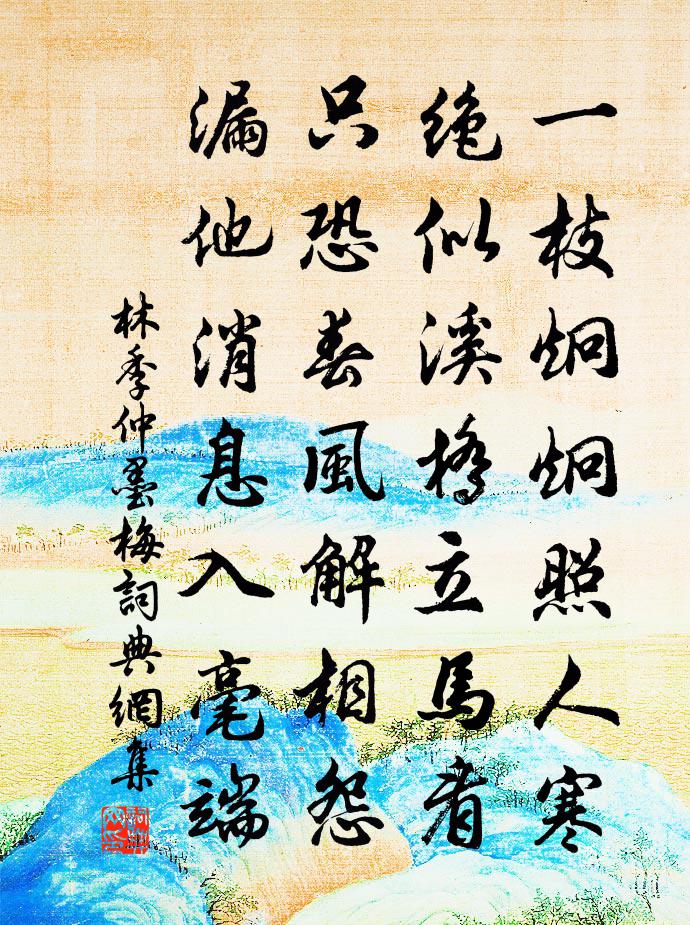 一枝炯炯照人寒
絶似溪橋立馬看
只恐春風解相怨
漏他消息入毫端
林季仲墨梅詞典網集